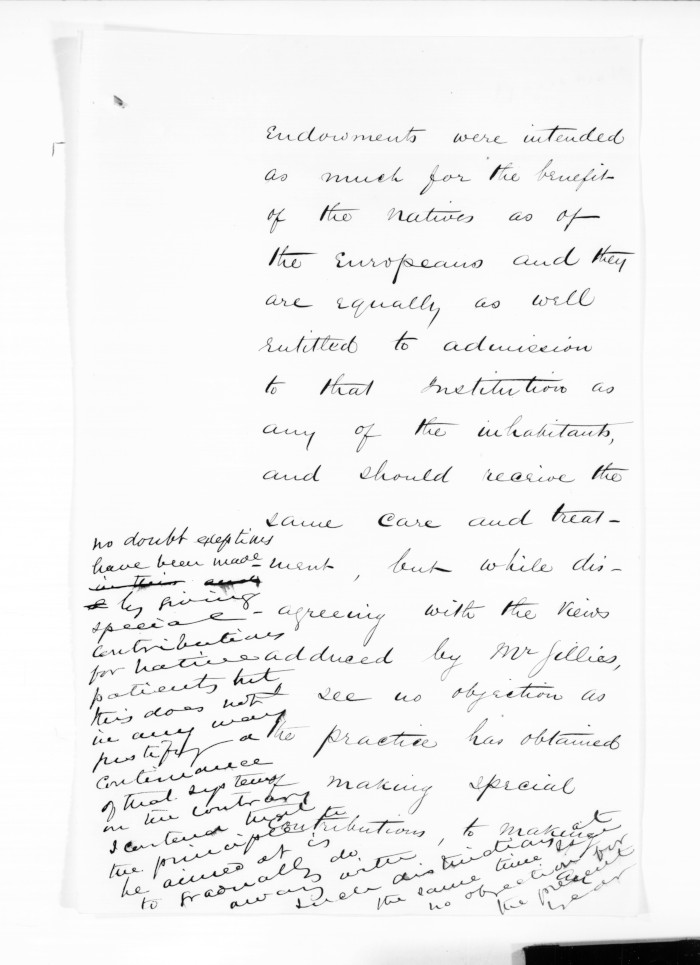 Endowments were intended
as much for the benefit
of the Natives as of
the Europeans and they
are equally as well
entitled to admission
to that Institution as
any of the inhabitants,
and should receive the
same care and treat-
-ment, but while dis-
-agreeing with the views
adduced by Mr Gillies,
I see no objection as
the practice has obtained
of making special
contributions, to making
no doubt exeptions
have been made
in this and
& by giving
special
contributions
for native
patients but
this does not
in any way
justify a
continuance
of that system
on the contrary
I contend that
the principle to
be aimed at is
to gradually do
away with
such distinctions at
the same time I see
no objection for
the present
year